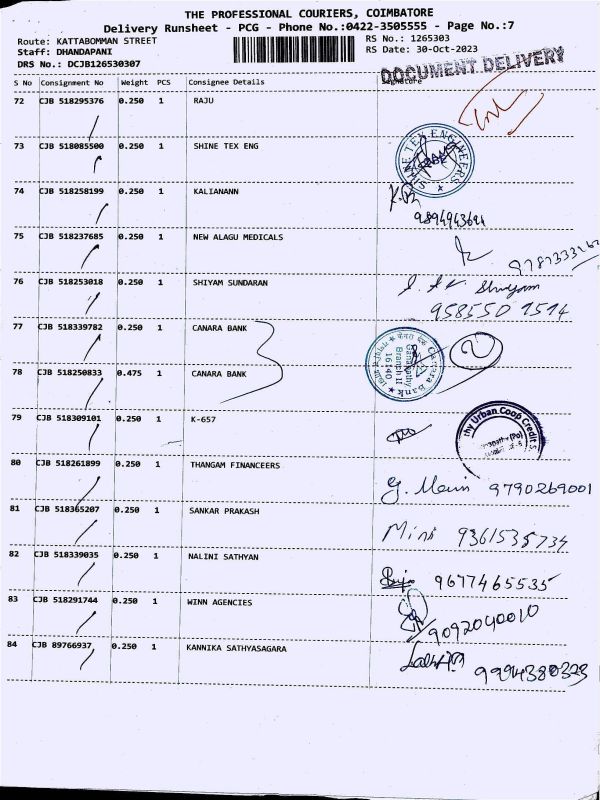 THE PROFESSIONAL COURIERS, COIMBATORE
Delivery Runsheet - PCG - Phone No.:0422-3505555 - Page No.:7
Route: KATTABOMMAN STREET RS No.: 1265303
Staff: DHANDAPANI RS Date: 30-Oct-2023
DRS No.: DCJB126530307
DOCUMENT DELIVERY
S No Consignment No Weight PCS Consignee Details Signature
72 CJB 518295376 0.250 1 RAJU
73 CJB 518085500 0.250 1 SHINE TEX ENG
SHINE TEX ENGINEERS
74 CJB 518258199 0.250 1 KALIANANN
9894943694
75 CJB 518237685 0.250 1 NEW ALAGU MEDICALS
76 CJB 518253018 0.250 1 SHIYAM SUNDARAN
77 CJB 518339782 0.250 1 CANARA BANK
Canara Bank
Ganapathy
Branch II
16140
2
78 CJB 518250833 0.475 1 CANARA BANK
79 CJB 518309101 0.250 1 K-657
thy Urban Coop Credit S
80 CJB 518261899 0.250 1 THANGAM FINANCEERS
9790269001
81 CJB 518365207 0.250 1 SANKAR PRAKASH
Mini 9361535734
82 CJB 518339035 0.250 1 NALINI SATHYAN
9677465535
83 CJB 518291744 0.250 1 WINN AGENCIES
9092040010
84 CJB 89766937 0.250 1 KANNIKA SATHYASAGARA
9994380323